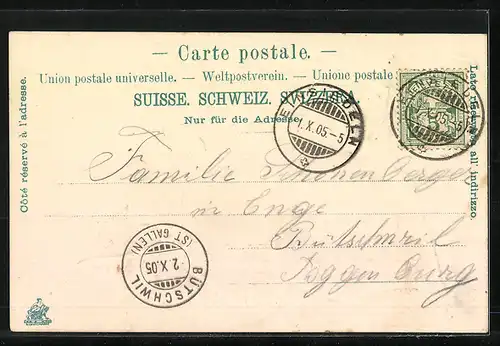 — Carte postale. —
Union postale universelle. — Weltpostverein. — Unione postale
SUISSE. SCHWEIZ. SVIZZERA
Nur für die Adresse
Côté réservé à l'adresse.
Lato riservato all' indirizzo.
EINSIEDELN
1.X.05.–5
EINSIEDELN
X.05.–5
Familie Schönenberger
in Enge
Bütschwil
Toggenburg
BÜTSCHWIL
(ST GALLEN)
2.X.05